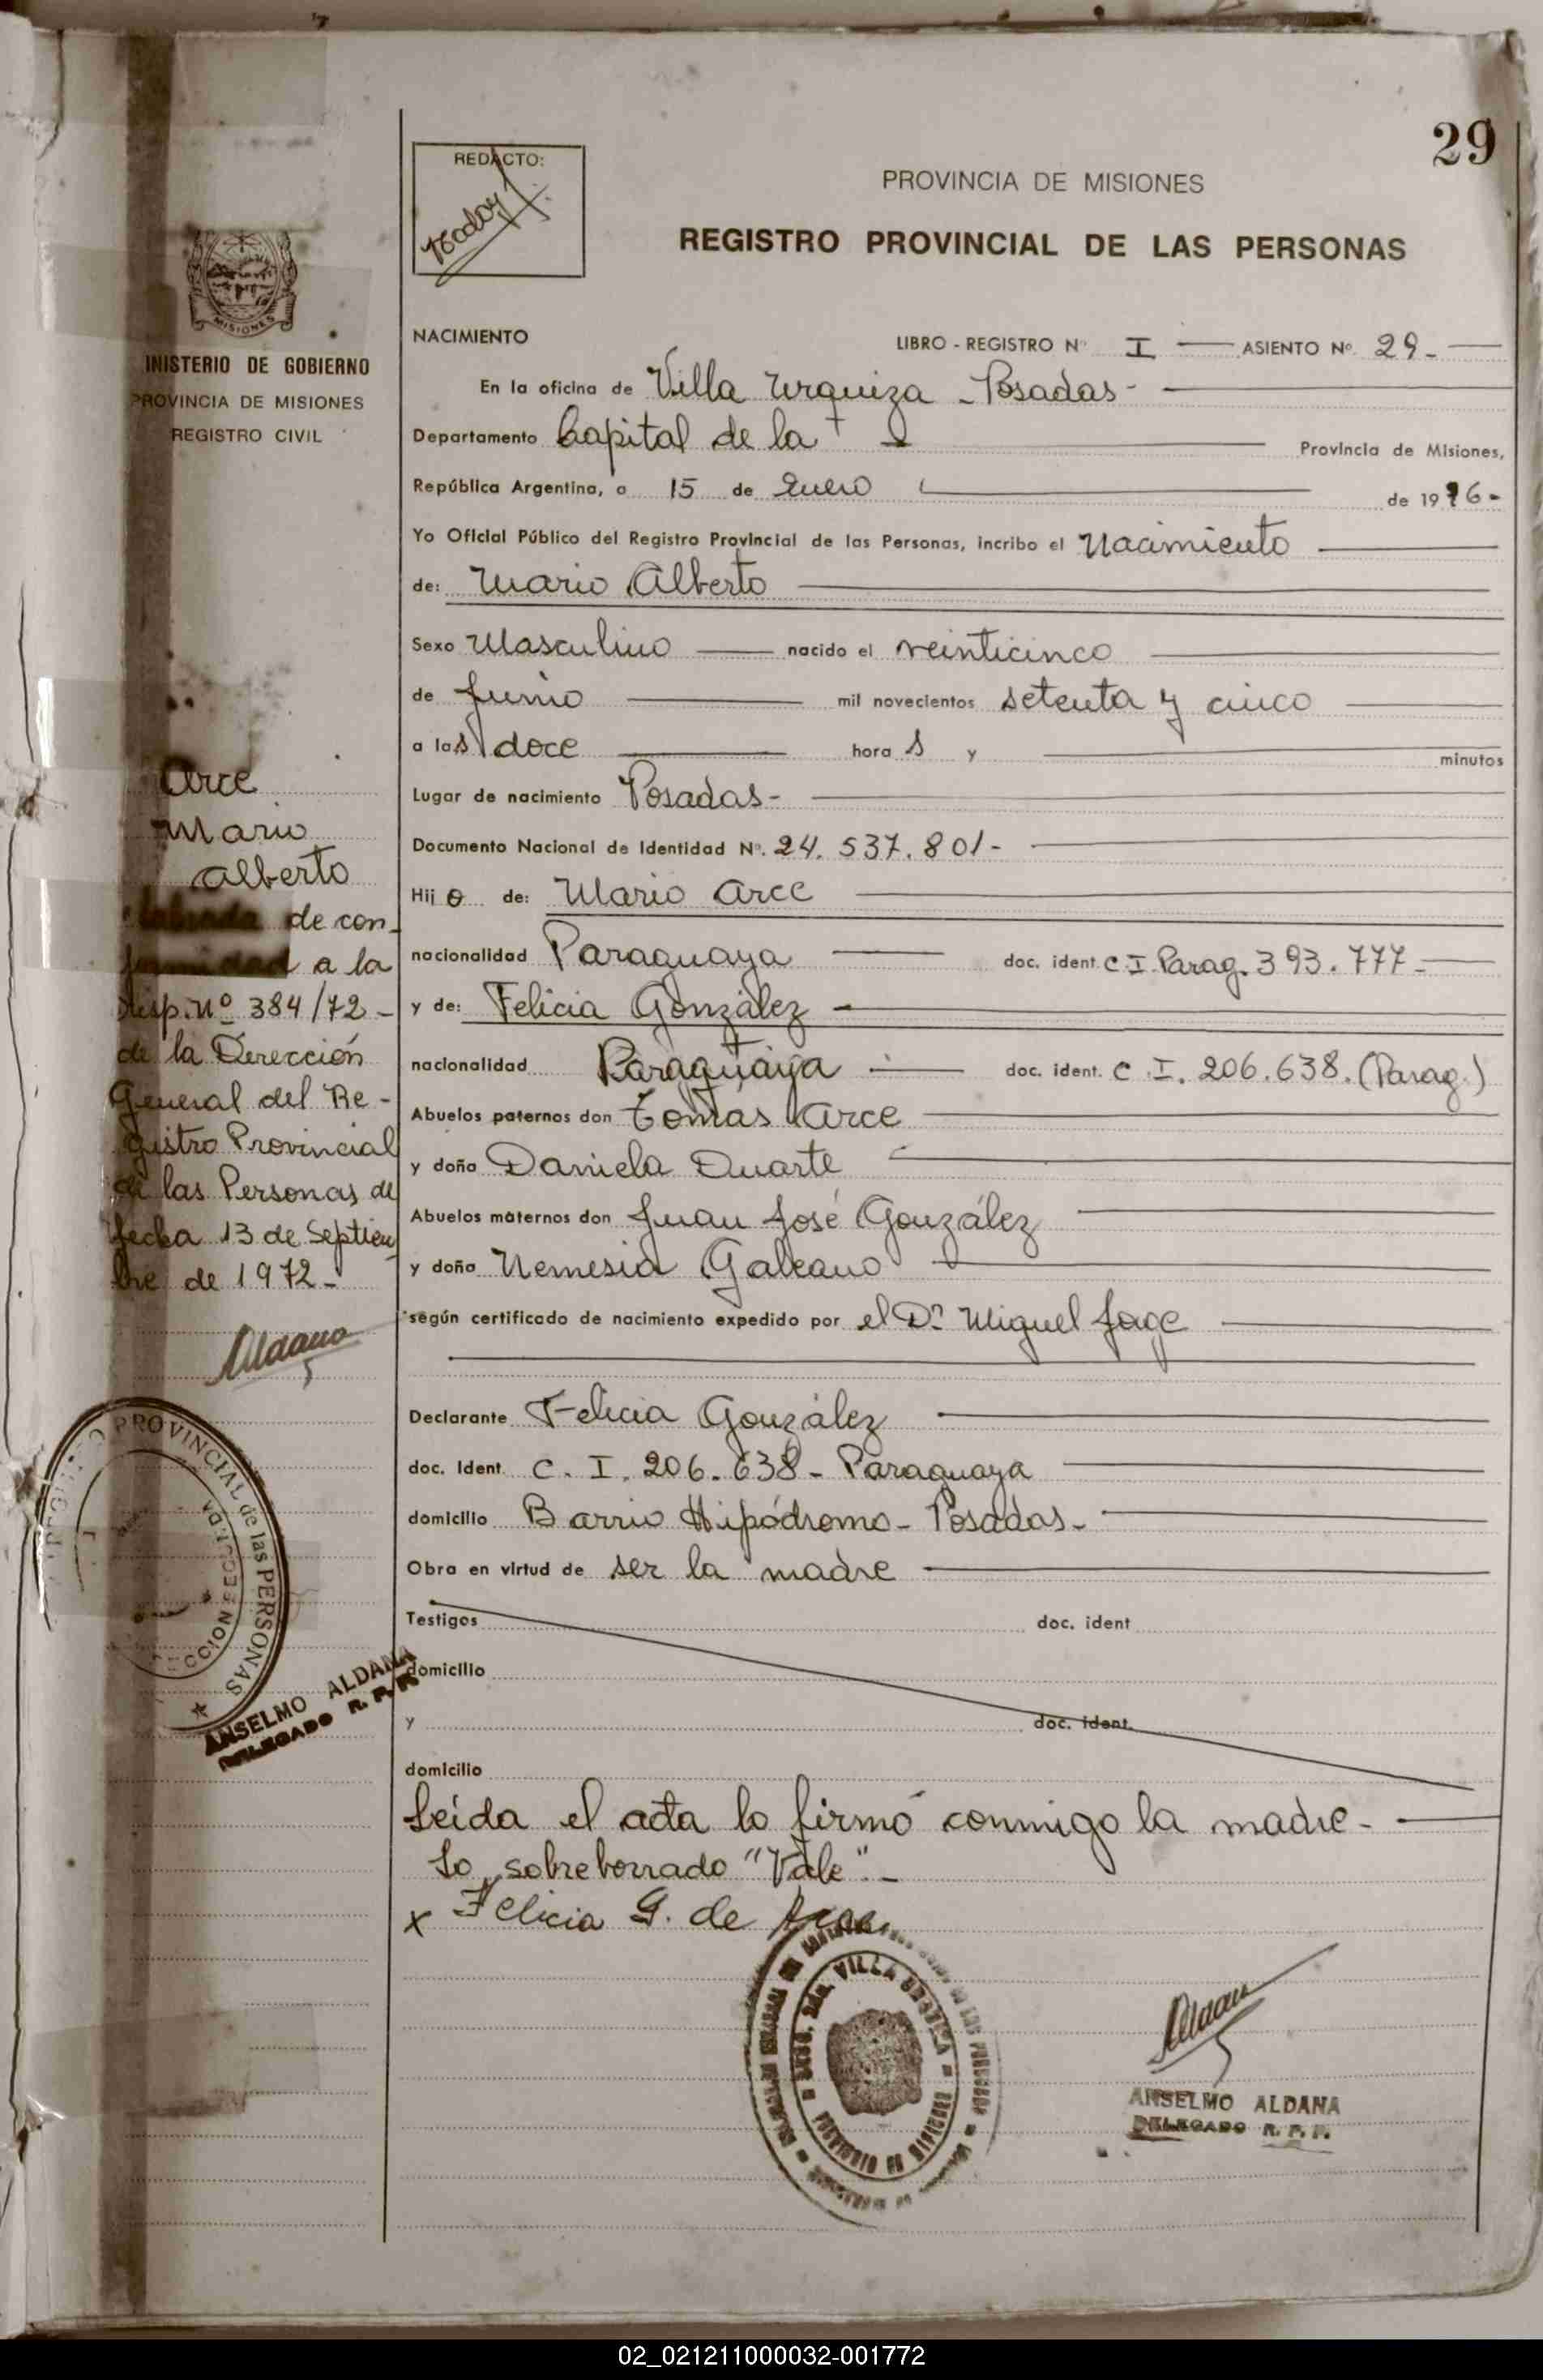 29
REDACTO:
PROVINCIA DE MISIONES
REGISTRO PROVINCIAL DE LAS PERSONAS
MISIONES
INISTERIO DE GOBIERNO
PROVINCIA DE MISIONES
REGISTRO CIVIL
NACIMIENTO LIBRO - REGISTRO Nº I ASIENTO Nº 29-
En la oficina de Villa Urquiza - Posadas -
Departamento Capital de la Provincia de Misiones,
República Argentina, a 15 de Enero de 1976-
Yo Oficial Público del Registro Provincial de las Personas, incribo el Nacimiento
de: Mario Alberto
Sexo Masculino nacido el veinticinco
de Junio mil novecientos setenta y cinco
a las doce hora s y minutos
Lugar de nacimiento Posadas-
Documento Nacional de Identidad Nº. 24.537.801-
Hij o de: Mario Arce
nacionalidad Paraguaya doc. ident C I Parag. 393.777-
y de: Felicia González -
nacionalidad Paraguaya doc. ident. C I. 206.638. (Parag.)
Abuelos paternos don Tomás Arce
y doña Daniela Duarte
Abuelos maternos don Juan José González
y doña Nemesia Galeano
según certificado de nacimiento expedido por el Dr. Miguel Jorge
Declarante Felicia González
doc. Ident C. I. 206.638- Paraguaya
domicilio Barrio Hipódromo- Posadas-
Obra en virtud de ser la madre
Testigos doc. ident
domicilio
y doc. ident.
domicilio
Leída el acta lo firmó conmigo la madre-
Lo sobreborrado "Vale".-
x Felicia G. de Arce
Arce
Mario
Alberto
labrada de con-
formidad a la
Disp. Nº 384/72-
de la Dirección
General del Re-
gistro Provincial
de las Personas de
fecha 13 de Septiem
bre de 1972-
PROVINCIAL de las PERSONAS
ANSELMO ALDANA
DELEGADO R. P. P.
VILLA URQUIZA
ANSELMO ALDANA
DELEGADO R. P. P.
02_021211000032-001772